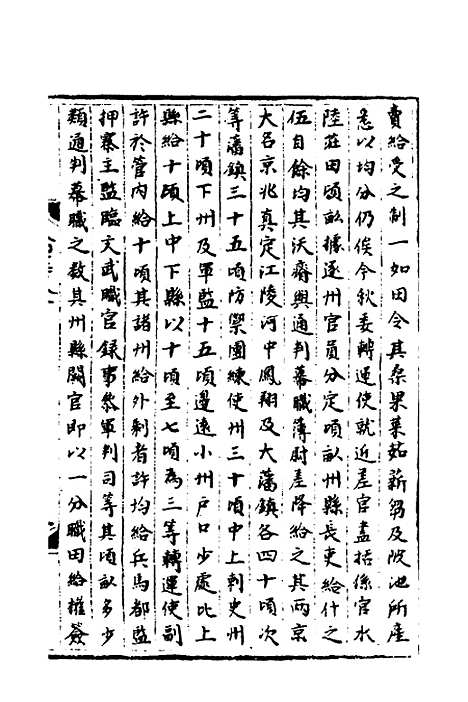 賣給受之制一如田令其桑果菜茹薪芻及陂池所産
悉以均分仍俟今秋委轉運使就近差官盡括係官水
陸莊田頃畝據逐州官員分定頃畝州縣長吏給什之
伍自餘均其沃瘠與通判幕職簿尉差降給之其兩京
大名京兆真定江陵河中鳳翔及大藩鎮各四十頃次
等藩鎮三十五頃防禦團練使州三十頃中上刺史州
二十頃下州及軍監十五頃邊遠小州戶口少處比上
縣給十頃上中下縣以十頃至七頃為三等轉運使副
許於管内給十頃其諸州給外剩者許均給兵馬都監
押寨主監臨文武職官録事叅軍判司等其頃畝多少
類通判幕職之数其州縣闕官即以一分職田給權簽